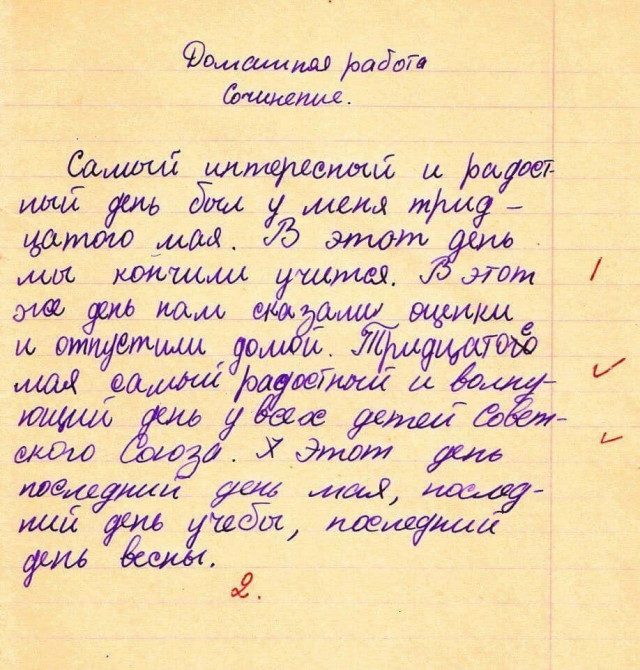 Домашняя работа
Сочинение.
Самый интересный и радост-
ный день был у меня трид-
цатого мая. В этот день
мы кончили учится. В этот
же день нам сказали оценки
и отпустили домой. Тридцатое
мая самый радостный и волну-
ющий день у всех детей Совет-
ского Союза. Х Этот день
последний день мая, послед-
ний день учебы, последний
день весны.
2.